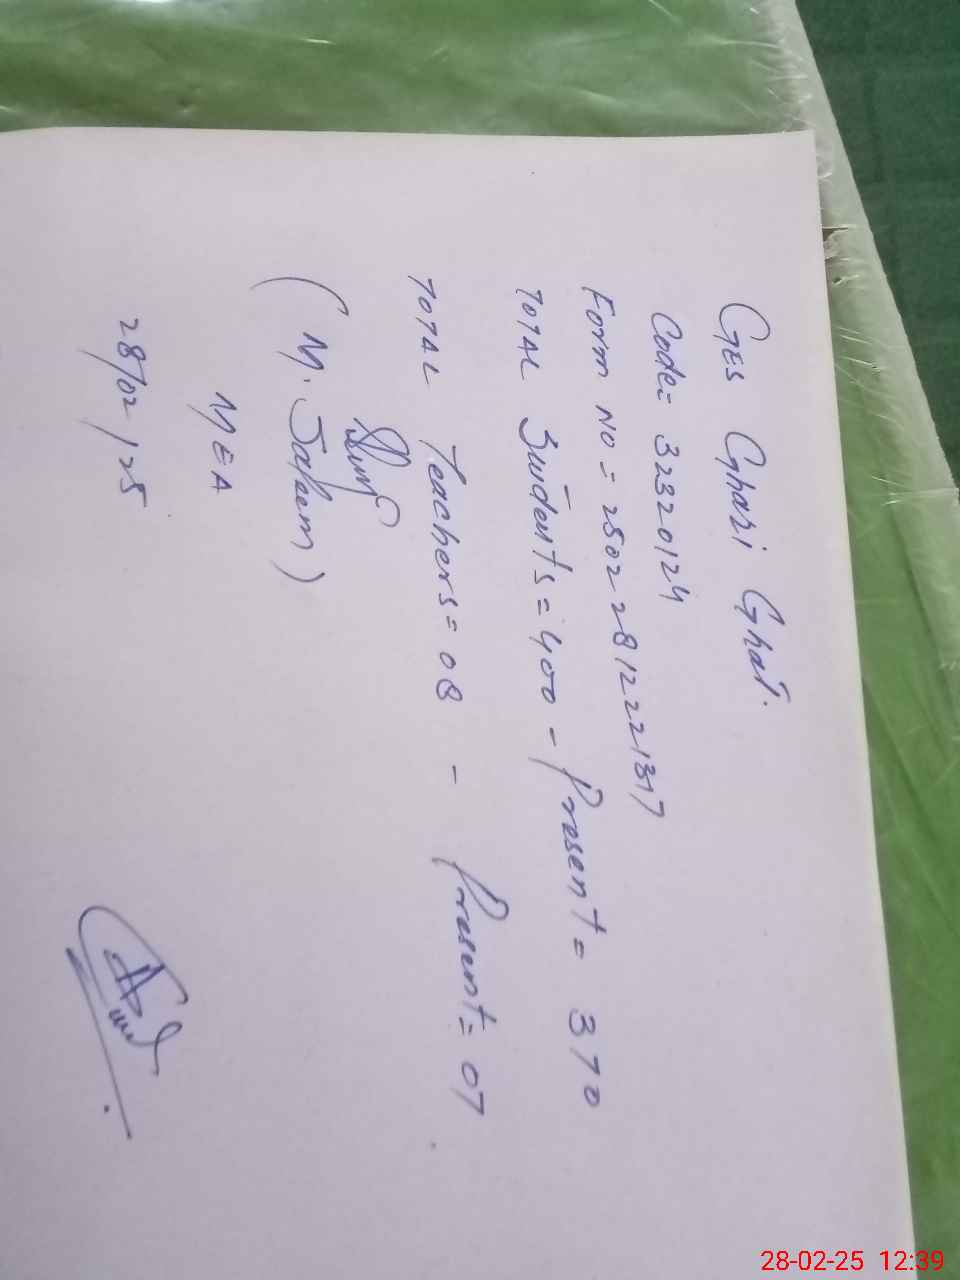 GES Ghari Ghat.
Code= 32320124
Form No = 25022812221317
TOTAL Students = 400 - Present = 370
TOTAL Teachers = 08 - Present = 07
(M. Saleem)
MEA
28/02/25
28-02-25 12:39